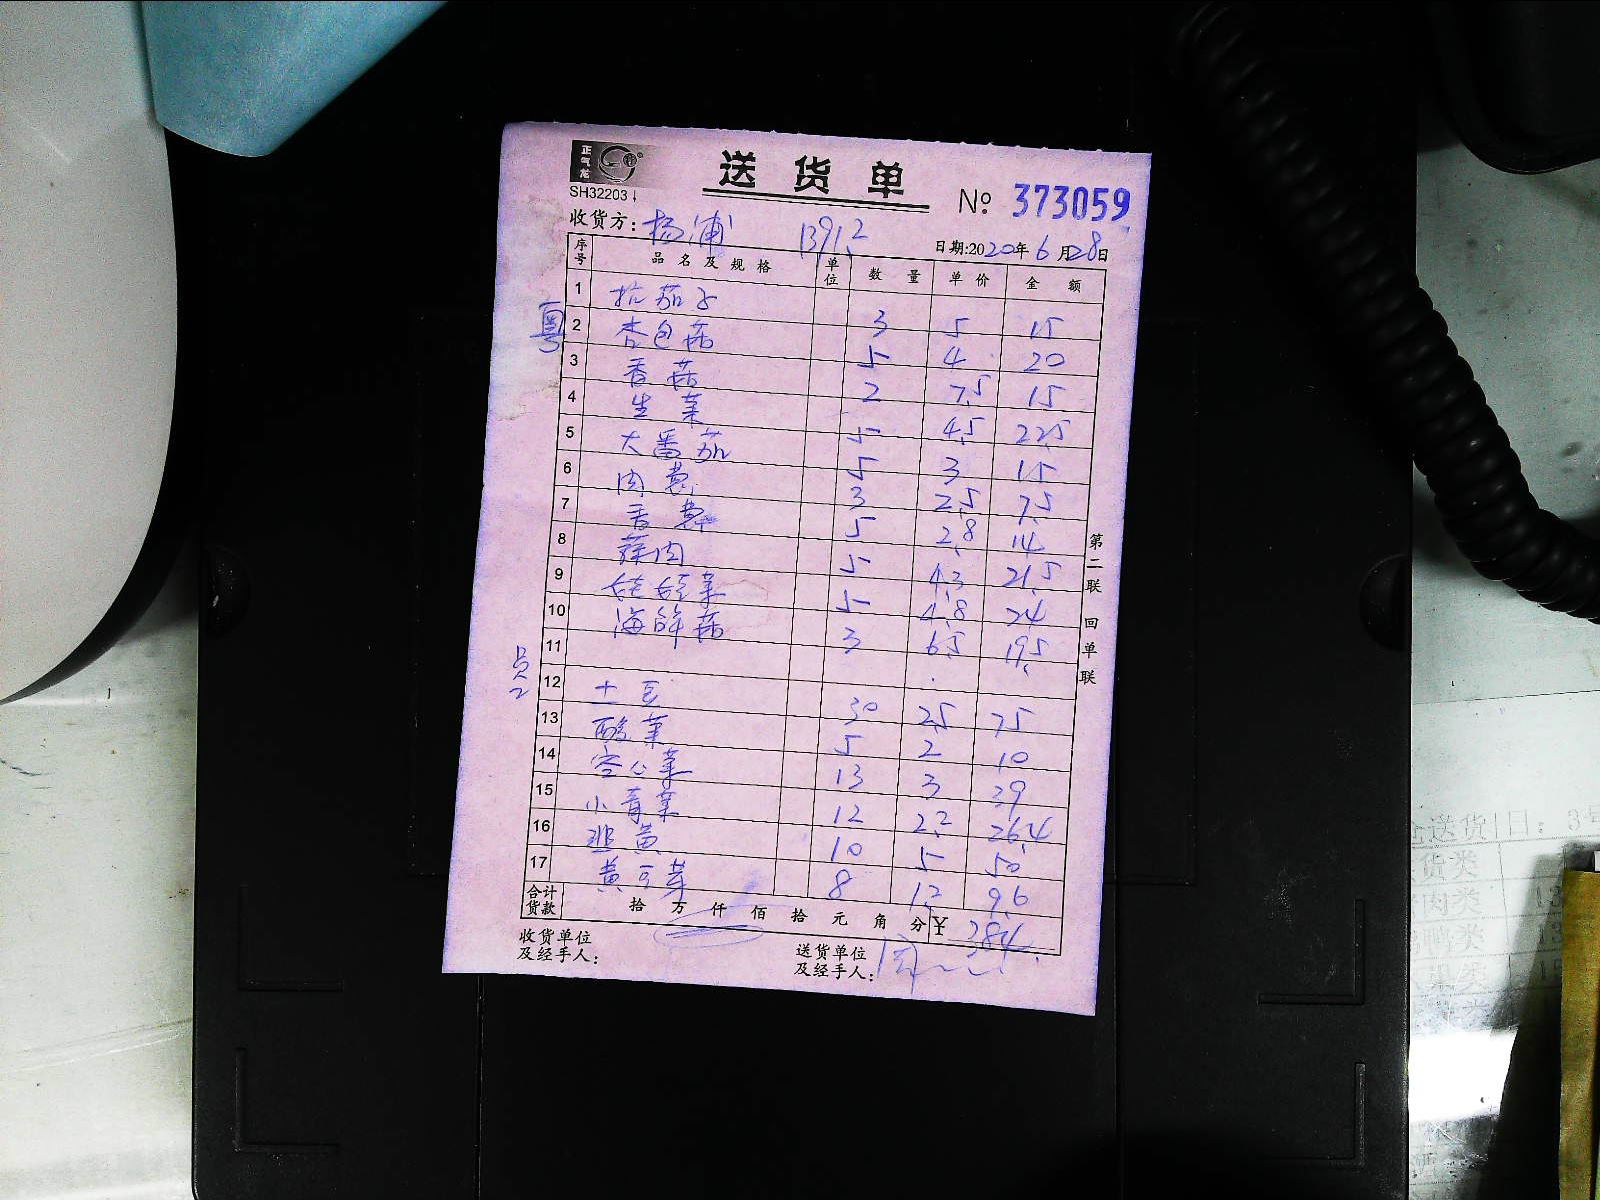 正气龙
SH32203
送货单
№ 373059
收货方: 杨浦 1391.2
日期:2020年6月28日
序号 品名及规格 单位 数量 单价 金额
粤
1 抗茄子 3 5 15
2 杏包菇 5 4 20
3 香菇 2 7.5 15
4 生菜 5 4.5 22.5
5 大番茄 5 3 15
6 肉葱 3 2.5 7.5
7 香葱 5 2.8 14
8 蒜肉 5 4.3 21.5
9 娃娃菜 5 4.8 24
10 海鲜菇 3 6.5 19.5
11
员
12 土豆 30 2.5 75
13 酸菜 5 2 10
14 包心菜 13 3 39
15 小青菜 12 2.2 26.4
16 韭黄 10 5 50
17 黄豆芽 8 1.2 9.6
合计货款 拾万仟佰拾元角分 ¥ 384.
收货单位及经手人:
送货单位及经手人:
第二联 回单联
送货日: 3号
货类
肉类 13
类
类
类